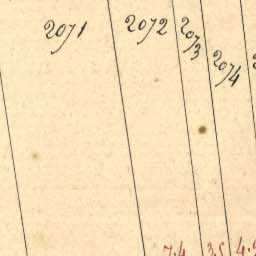 2071
2072
2073
2074
7.4